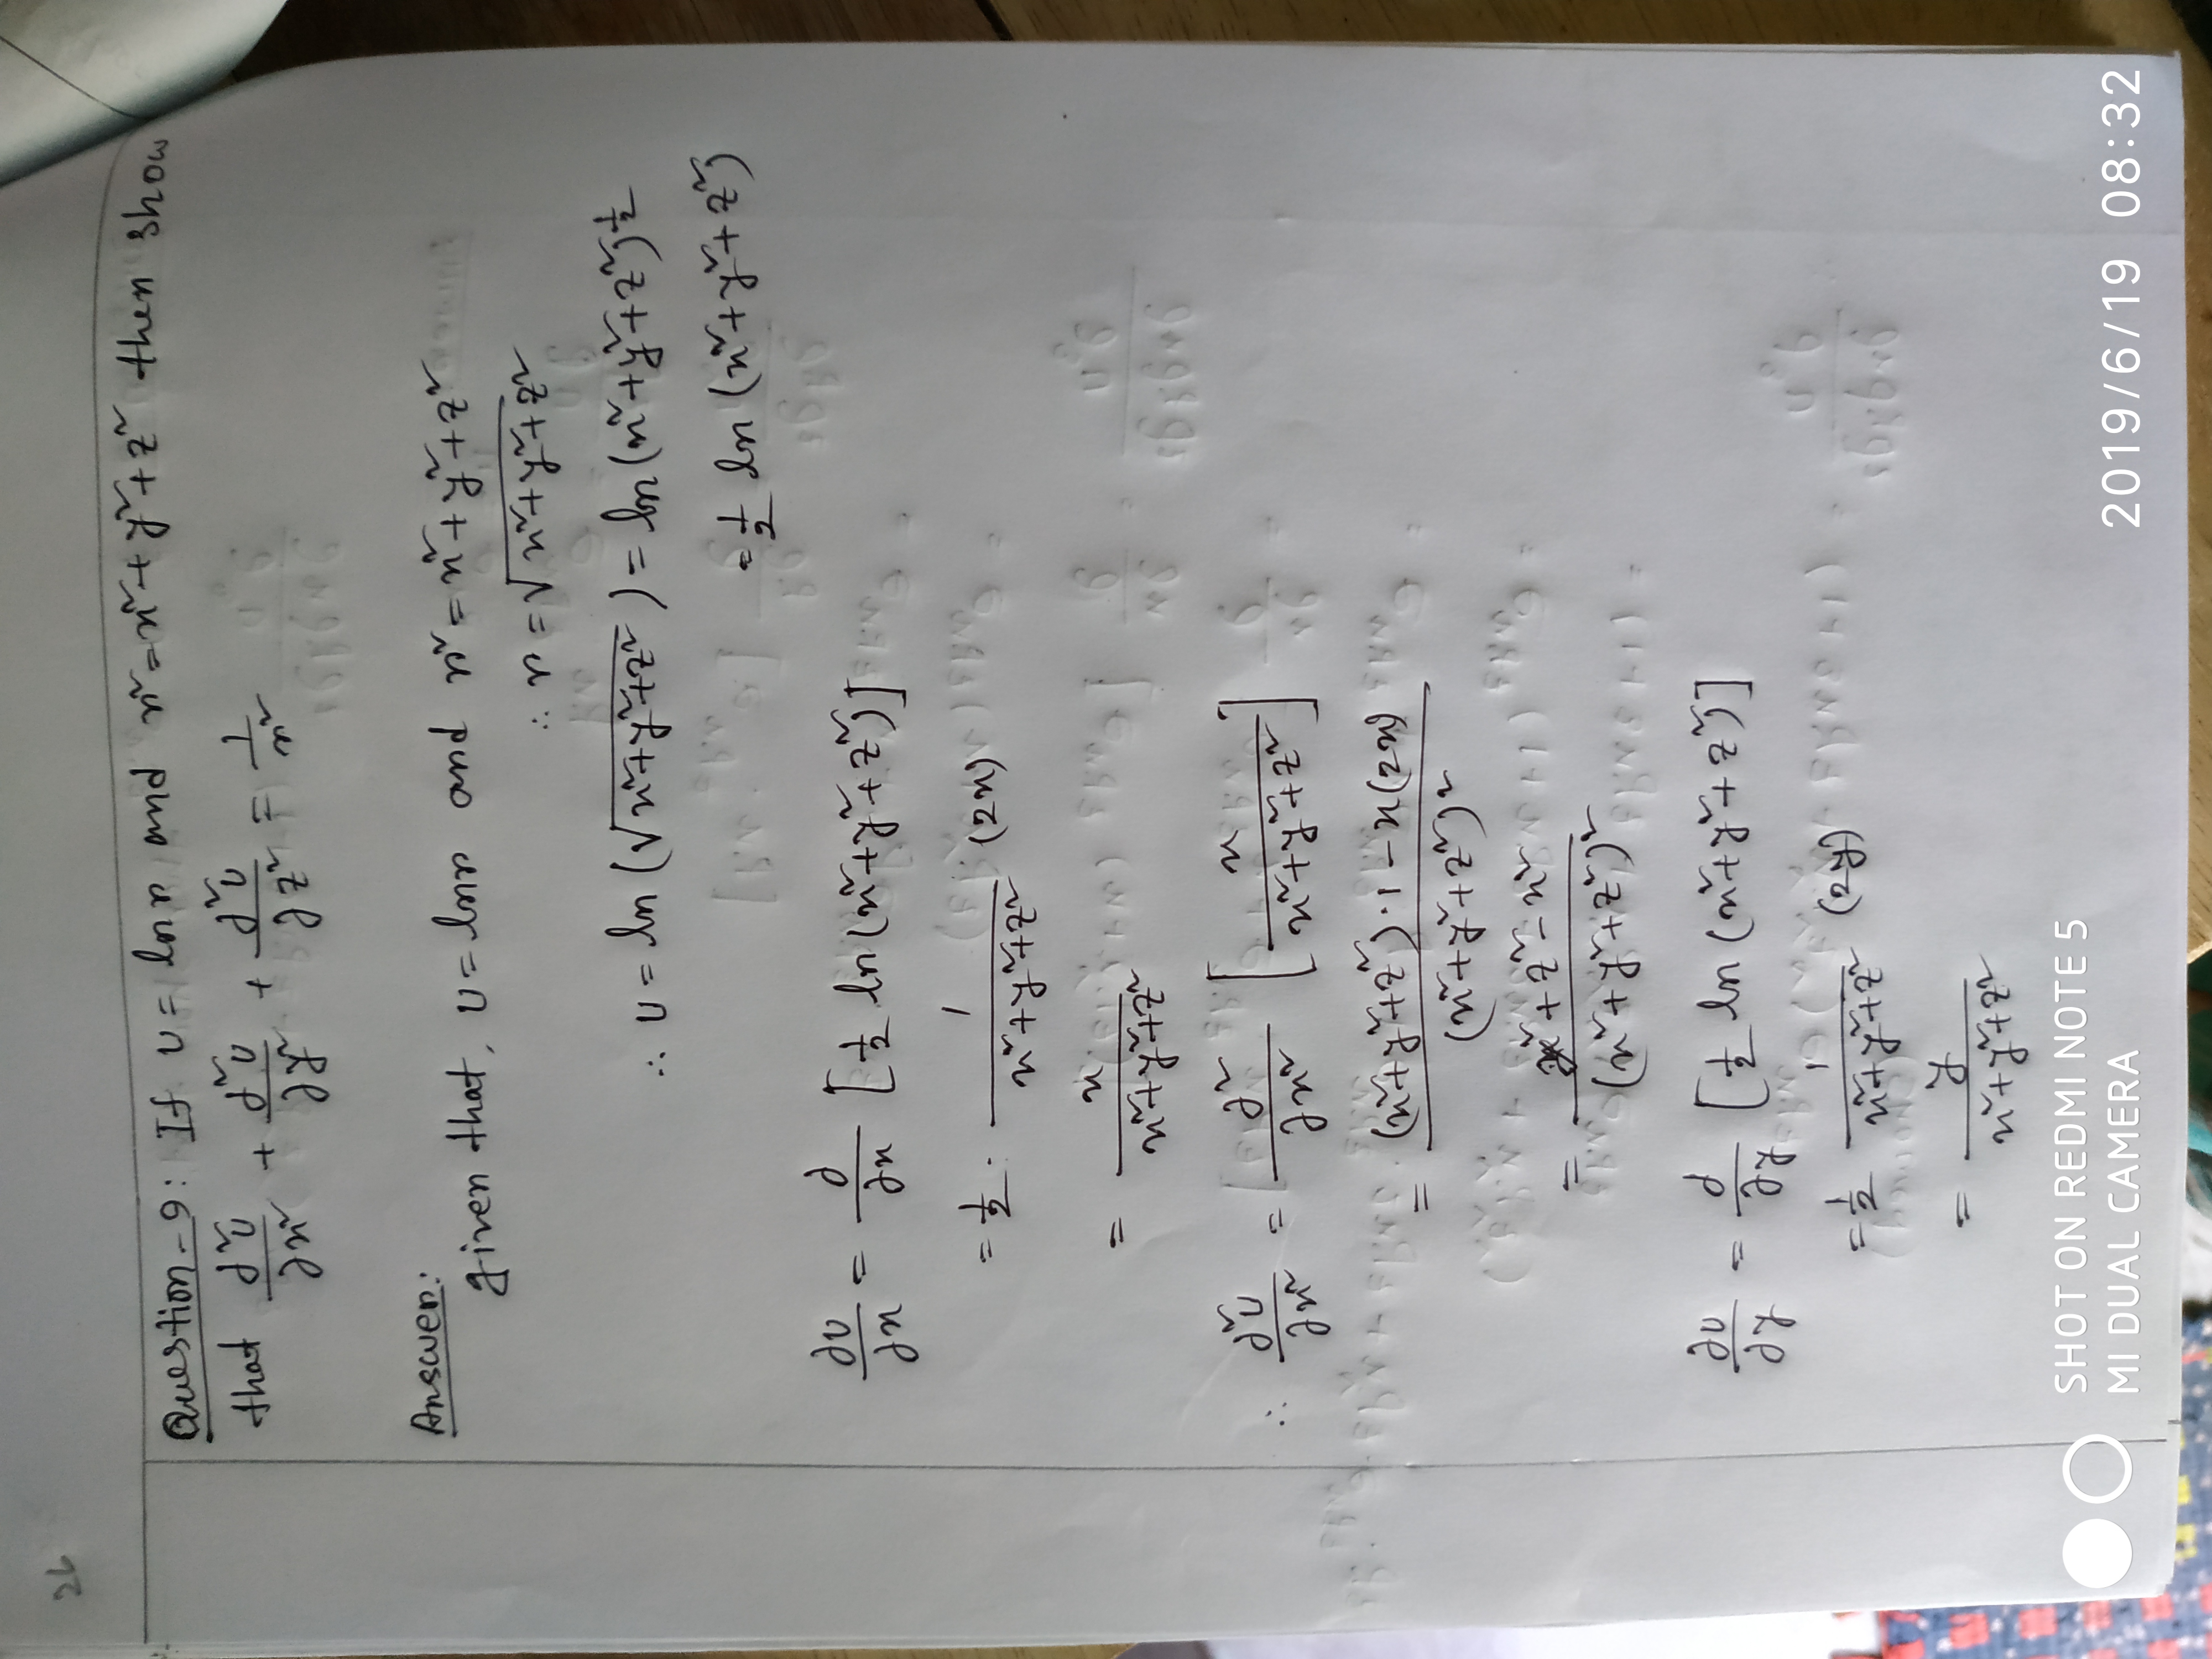 26
Question-9: If u = ln r and r² = x² + y² + z² then show
that ∂²u/∂x² + ∂²u/∂y² + ∂²u/∂z² = 1/r²
Answer:
given that, u = ln r and r² = x² + y² + z²
∴ r = √(x² + y² + z²)
∴ u = ln (√(x² + y² + z²)) = ln (x² + y² + z²)^½
= ½ ln (x² + y² + z²)
∂u/∂x = ∂/∂x [½ ln (x² + y² + z²)]
= ½ · 1/(x² + y² + z²) (2x)
= x/(x² + y² + z²)
∴ ∂²u/∂x² = ∂²/∂x² [x/(x² + y² + z²)]
= ((x² + y² + z²)·1 − x(2x))/(x² + y² + z²)²
= (y² + z² − x²)/(x² + y² + z²)²
∂u/∂y = ∂/∂y [½ ln (x² + y² + z²)]
= ½ 1/(x² + y² + z²) (2y)
= y/(x² + y² + z²)
SHOT ON REDMI NOTE 5
MI DUAL CAMERA
2019/6/19 08:32